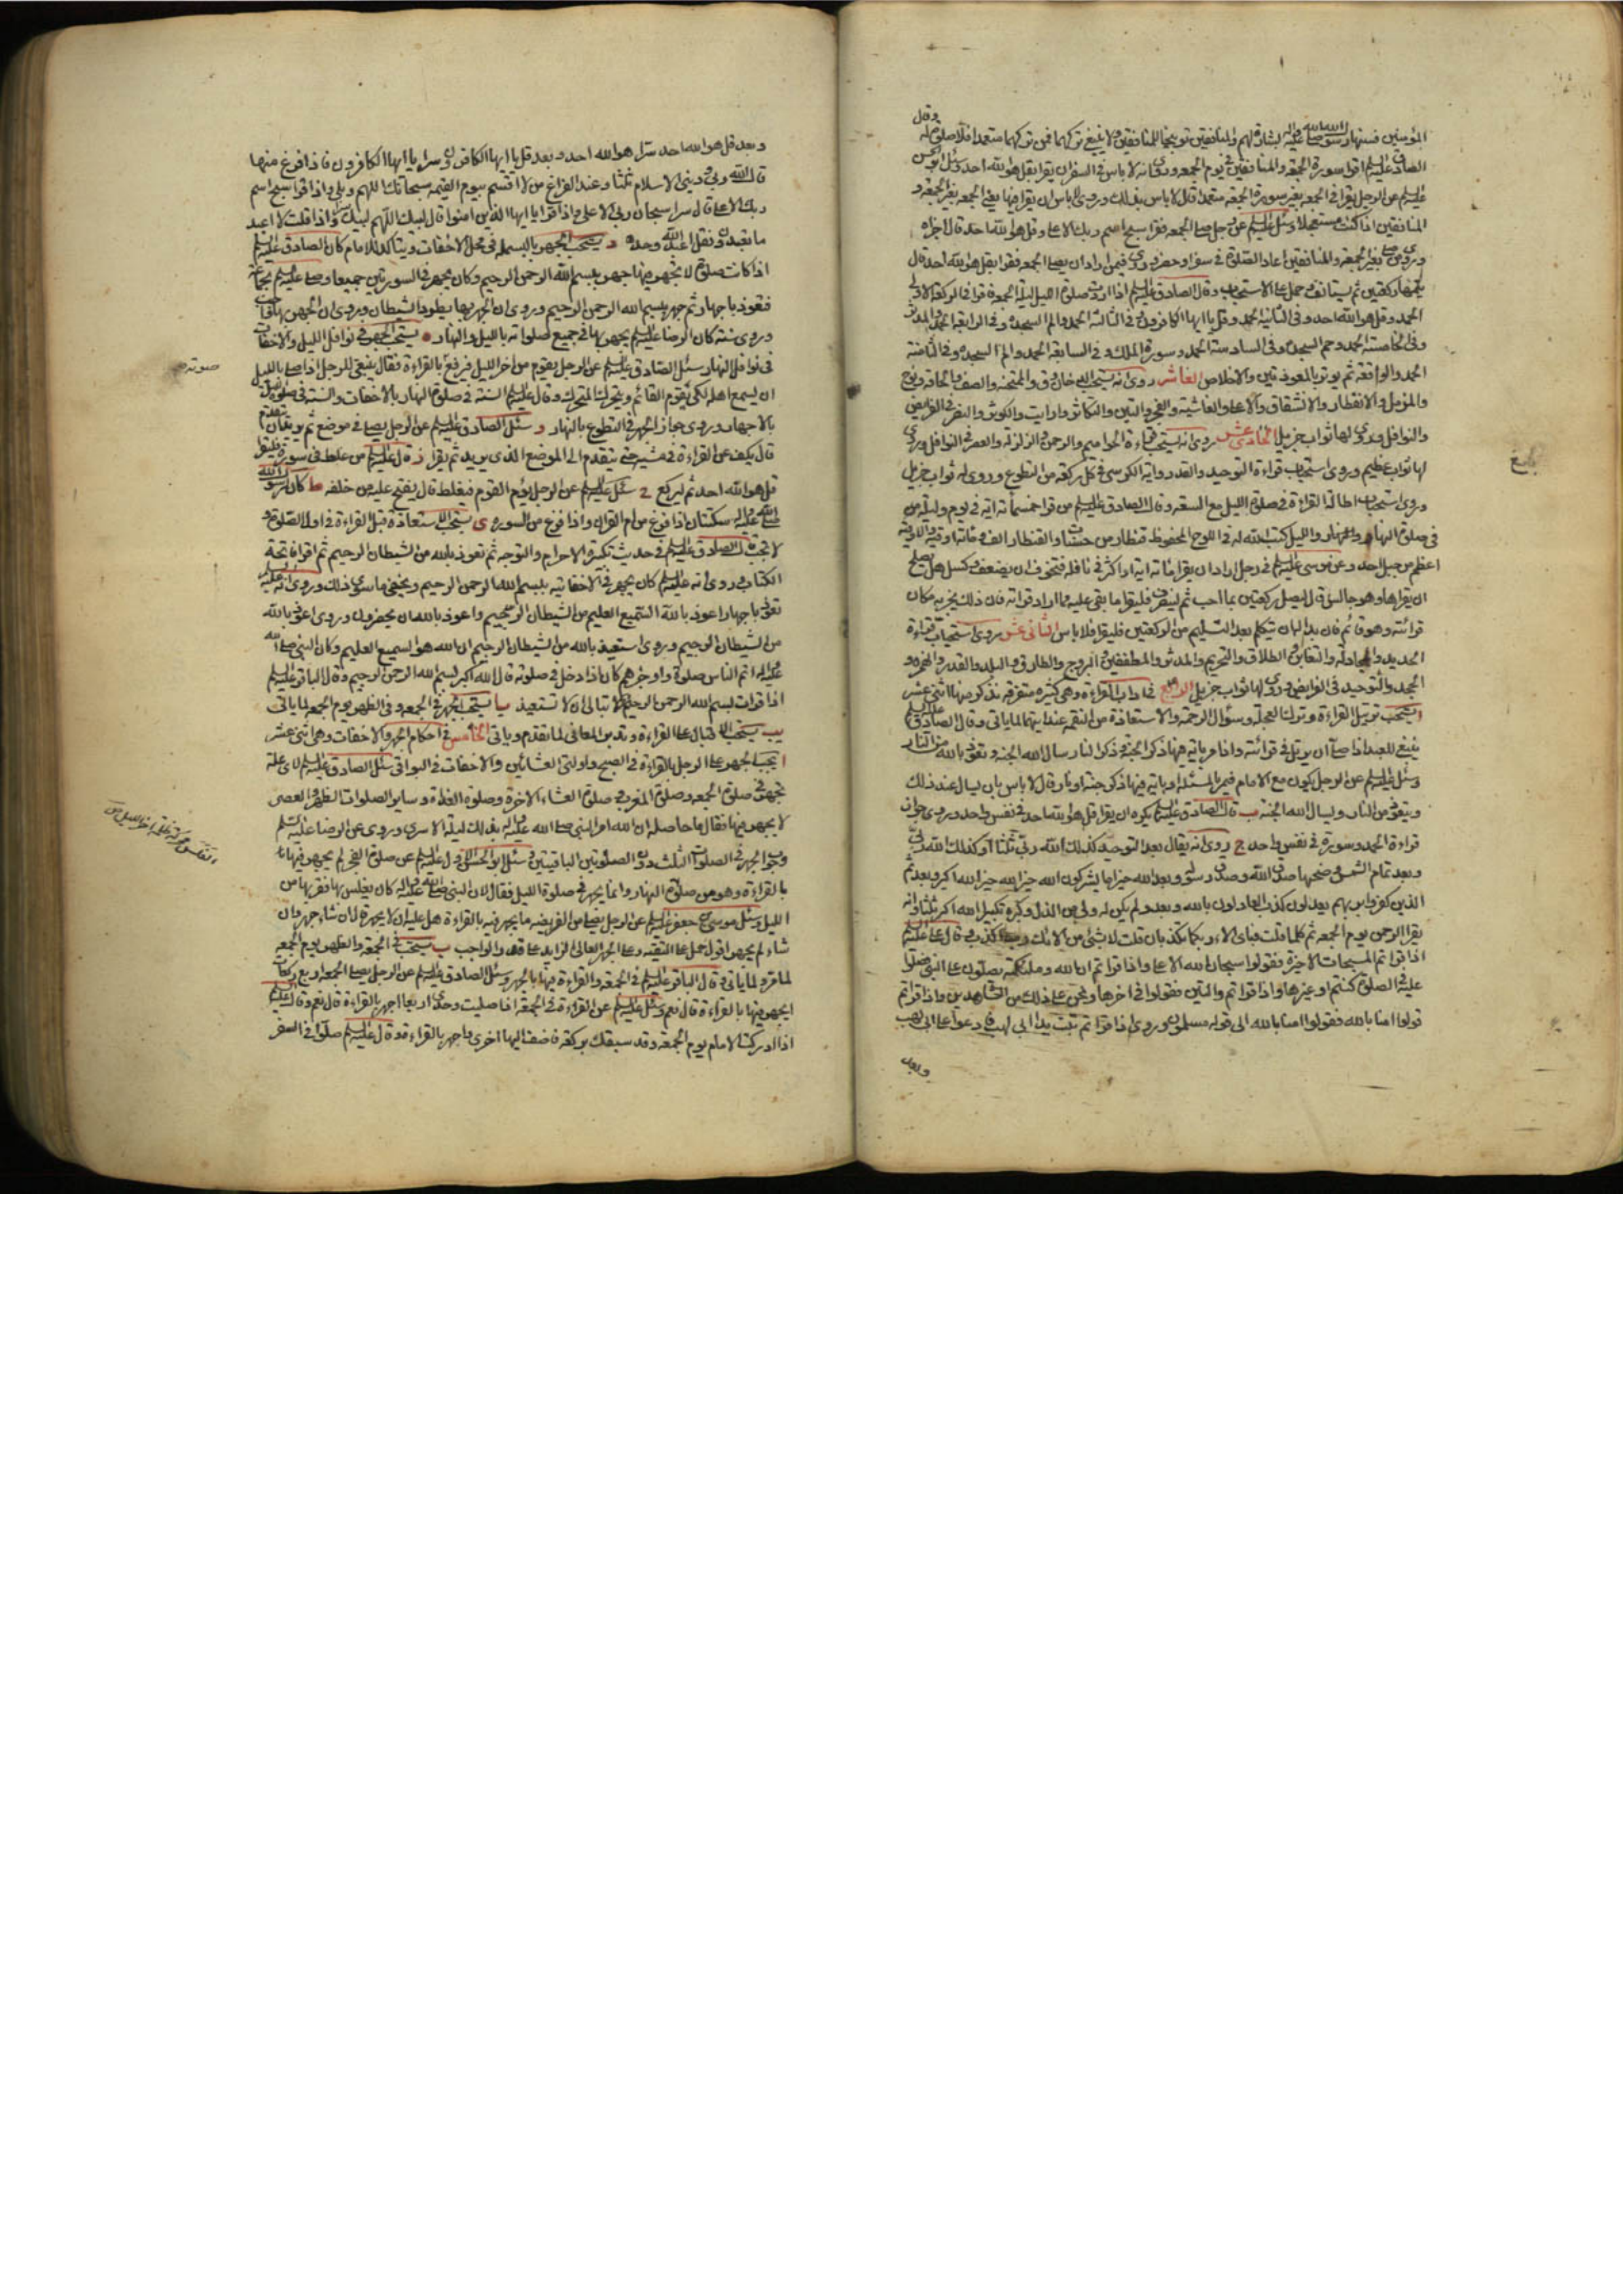 وقال
المؤمنين فسنها رسول الله صلى الله عليه وآله بشارة لهم والمنافقين توبيخا للمنافقين ولا ينبغي تركهما فمن تركهما متعمدا فلا صلوة له
الصادق عليه السلم اقرا سورة الجمعة والمنافقين في يوم الجمعه وروى انه لا باس في السفر ان يقرا بقل هو الله احد وسئل ابو الحسن
عليه السلم عن الرجل يقرا في الجمعه بغير سورة الجمعه متعمدا قال لا باس بذلك وروى لا باس ان يقرا فيها بغير الجمعه
المنافقين اذا كنت مستعجلا وسئل عليه السلم عن رجل صلى الجمعه فقرا سبح اسم ربك الاعلى وقل هو الله احد قال اجزاه
وروى من صلى بغير الجمعة والمنافقين اعاد الصلوة في سفر او حضر وروى فيمن اراد ان يصلى الجمعه فقرا بقل هو الله احد قال
يتمها ركعتين ثم يستانف وحمل على الاستحباب وقال الصادق عليه السلم اذا اردت صلوة الليل ليلة الجمعة فاقرا في الركعة الاولى
الحمد وقل هو الله احد وفي الثانية الحمد وقل يا ايها الكافرون وفي الثالثة الحمد والم السجده وفي الرابعة الحمد والمدثر
وفي الخامسة الحمد وحم السجده وفي السادسة الحمد وسورة الملك وفي السابعة الحمد والم السجده وفي الثامنة
الحمد والواقعة ثم يوتر بالمعوذتين والاخلاص العاشر روى انه يستحب الدخان وق والممتحنه والصف والحاقه ونوح
والمزمل والانفطار والانشقاق والاعلى والغاشية والفجر والتين والتكاثر وارايت والكوثر والنصر في الفرايض
والنوافل وروى لها ثواب جزيل الحادى عشر روى انه يستحب قراءة الحواميم والرحمن والزلزلة والعصر في النوافل وروى
لها ثواب عظيم وروى استحباب قراءة التوحيد والقدر واية الكرسي في كل ركعة من التطوع وروى له ثواب جزيل
وروى استحباب اطالة القراءة في صلوة الليل مع السعة وقال الصادق عليه السلم من قرا خمسمائة اية في يوم وليلة من
في صلوة النهار والليل كتب الله له في اللوح المحفوظ قنطار من حسنات والقنطار الف ومائتا اوقية والاوقية
اعظم من جبل احد وعن موسى عليه السلم في رجل اراد ان يقرا مائة اية او اكثر في نافلة فتخوف ان يضعف وكسل هل يصلح
ان يقراها وهو جالس قال ليصل ركعتين بما احب ثم لينصرف فليقرا ما بقي عليه مما اراد قراته فان ذلك يجزيه مكان
قراءته وهو قائم فان بدا له ان يتكلم بعد التسليم من الركعتين فليقرا فلا باس الثانى عشر روى استحباب قراءة
الحديد والمجادلة والتغابن والطلاق والتحريم والمدثر والمطففين والبروج والطارق والبلد والقدر والهمزه و
الجحد والتوحيد في الفرايض وروى لها ثواب جزيل الرابع في اداب القراءة وهي كثيرة متفرقة نذكر منها اثنى عشر
ا يستحب ترتيل القراءة وترك العجلة وسؤال الرحمة والاستعاذة من النقمة عند ايتهما لما ياتى وقال الصادق عليه السلم
ينبغي للعبد اذا صلى ان يرتل في قراءته واذا مر باية فيها ذكر الجنة وذكر النار سال الله الجنة وتعوذ بالله من النار
وسئل عليه السلم عن الرجل يكون مع الامام فيمر بالمسئلة او باية فيها ذكر جنة او نار قال لا باس بان يسال عند ذلك
ويتعوذ من النار ويسال الله الجنة ب قال الصادق عليه السلم يكره ان يقرا قل هو الله احد في نفس واحد وروى جواز
قراءة الحمد وسورة في نفس واحد ج روى انه يقال بعد التوحيد كذلك الله ربى ثلثا او كذلك الله ربى
وبعد تمام الشمس وضحيها صدق الله وصدق رسوله وبعد الله خير اما يشركون الله خير الله خير الله اكبر وبعد ثم
الذين كفروا بربهم يعدلون كذب العادلون بالله وبعد ولم يكن له ولى من الذل وكبره تكبيرا الله اكبر ثلثا وانه
يقرا الرحمن يوم الجمعه ثم كلما قلت فباى الاء ربكما تكذبان قلت لا بشئ من الائك رب اكذب وقال على عليه السلم
اذا قراتم المسبحات الاخيرة فقولوا سبحان الله الاعلى واذا قراتم ان الله وملئكته يصلون على النبى فصلوا
عليه في الصلوة كنتم او غيرها واذا قراتم والتين فقولوا في اخرها ونحن على ذلك من الشاهدين واذا قراتم
قولوا امنا بالله فقولوا امنا بالله الى قوله مسلمون وروى اذا قراتم تبت يدا ابى لهب فادعوا على ابى لهب
وبعد
بلغ
وبعد قل هو الله احد سرا هو الله احد وبعد قل يا ايها الكافرون سرا يا ايها الكافرون فاذا فرغ منها
قال الله ربى وديني الاسلام ثلثا وعند الفراغ من لا اقسم بيوم القيمه سبحانك اللهم وبلى واذا قرا سبح اسم
ربك الاعلى قال سرا سبحان ربى الاعلى واذا قرا يا ايها الذين امنوا قال لبيك اللهم لبيك سرا واذا قلت لا اعبد
ما تعبدون فقل اعبد الله وحده د يستحب الجهر بالبسملة في محل الاخفات ويتاكد للامام كان الصادق عليه السلم
اذا كانت صلوة لا تجهر فيها جهر ببسم الله الرحمن الرحيم وكان يجهر في السورتين جميعا وصلى عليه السلم بجماعة
فتعوذ باجهار ثم جهر ببسم الله الرحمن الرحيم وروى ان الجهر بها يطرد الشيطان وروى ان الجهر بها
وروى سنة كان الرضا عليه السلم يجهر بها في جميع صلواته بالليل والنهار ه يستحب الجهر في نوافل الليل والاخفات
في نوافل النهار سئل الصادق عليه السلم عن الرجل يقوم من اخر الليل فيرفع بالقراءة فقال ينبغي للرجل اذا صلى بالليل
صوته
ان يسمع اهله لكى يقوم القائم ويتحرك المتحرك وقال عليه السلم السنة في صلوة النهار بالاخفات والسنة في صلوة الليل
بالاجهار وروى جواز الجهر في التطوع بالنهار و سئل الصادق عليه السلم عن الرجل يصلى في موضع ثم يريد ان يتقدم
قال يكف عن القراءة في مشيه حتى يتقدم الى الموضع الذى يريد ثم يقرا ز قال عليه السلم من غلط في سورة فليقرا
قل هو الله احد ثم ليركع ح سئل عليه السلم عن الرجل يؤم القوم فيغلط قال يفتح عليه من خلفه ط كان لرسول الله
صلى الله عليه وآله سكتتان اذا فرغ من ام القران واذا فرغ من السورة ى يستحب الاستعاذة قبل القراءة في اول الصلوة و
لا تجب قال الصادق عليه السلم في حديث تكبيرة الاحرام والتوجه ثم تعوذ بالله من الشيطان الرجيم ثم اقرا فاتحة
الكتاب وروى انه عليه السلم كان يجهر في الاخفاتية ببسم الله الرحمن الرحيم ويخفى ما سوى ذلك وروى انه عليه السلم
تعوذ باجهار اعوذ بالله السميع العليم من الشيطان الرجيم واعوذ بالله ان يحضرون وروى اعوذ بالله
من الشيطان الرجيم وروى استعيذ بالله من الشيطان الرجيم ان الله هو السميع العليم وكان النبى صلى الله
عليه وآله اتم الناس صلوة واوجزهم كان اذا دخل في صلوته قال الله اكبر بسم الله الرحمن الرحيم وقال الباقر عليه السلم
اذا قرات بسم الله الرحمن الرحيم فلا تبالى ان لا تستعيذ يا يستحب الجهر في الجمعه وفي الظهر يوم الجمعه لما ياتى
يب يستحب الاقبال على القراءة وتدبر المعانى لما تقدم وياتى الخامس في احكام الجهر والاخفات وهي اثنى عشر
ا يجب الجهر على الرجل بالقراءة في الصبح واولتى العشائين والاخفات في البواقى سئل الصادق عليه السلم لاى علة
تجهر في صلوة الجمعه وصلوة المغرب وصلوة العشاء الاخرة وصلوة الغداة وساير الصلوات الظهر والعصر
لا يجهر فيها فقال ما حاصله ان الله امر النبى صلى الله عليه وآله بذلك ليلة الاسرى وروى عن الرضا عليه السلم
وجوب الجهر في الصلوات الثلث دون الصلوتين الباقيتين وسئل ابو الحسن الاول عليه السلم عن صلوة الفجر لم يجهر فيها
بالقراءة وهو من صلوة النهار وانما يجهر في صلوة الليل فقال لان النبى صلى الله عليه وآله كان يغلس بها فقربها من
الليل وسئل موسى بن جعفر عليه السلم عن الرجل يصلى من الفريضه ما يجهر فيه بالقراءة هل عليه ان لا يجهر قال ان شاء جهر وان
شاء لم يجهر اقول حمل على التقيه وعلى الجهر العالى الزايد على قدر الواجب ب يستحب في الجمعة والظهر يوم الجمعه
لما مر ولما ياتى وقال الباقر عليه السلم في الجمعة والقراءة فيها بالجهر وسئل الصادق عليه السلم عن الرجل يصلى الجمعه اربع ركعات
ايجهر فيها بالقراءة قال نعم وسئل عليه السلم عن القراءة في الجمعة اذا صليت وحدى اربعا اجهر بالقراءة قال نعم وقال عليه السلم
اذا ادركت الامام يوم الجمعه وقد سبقك بركعة فاضف اليها اخرى واجهر بالقراءة وقال عليه السلم صلوا في السفر